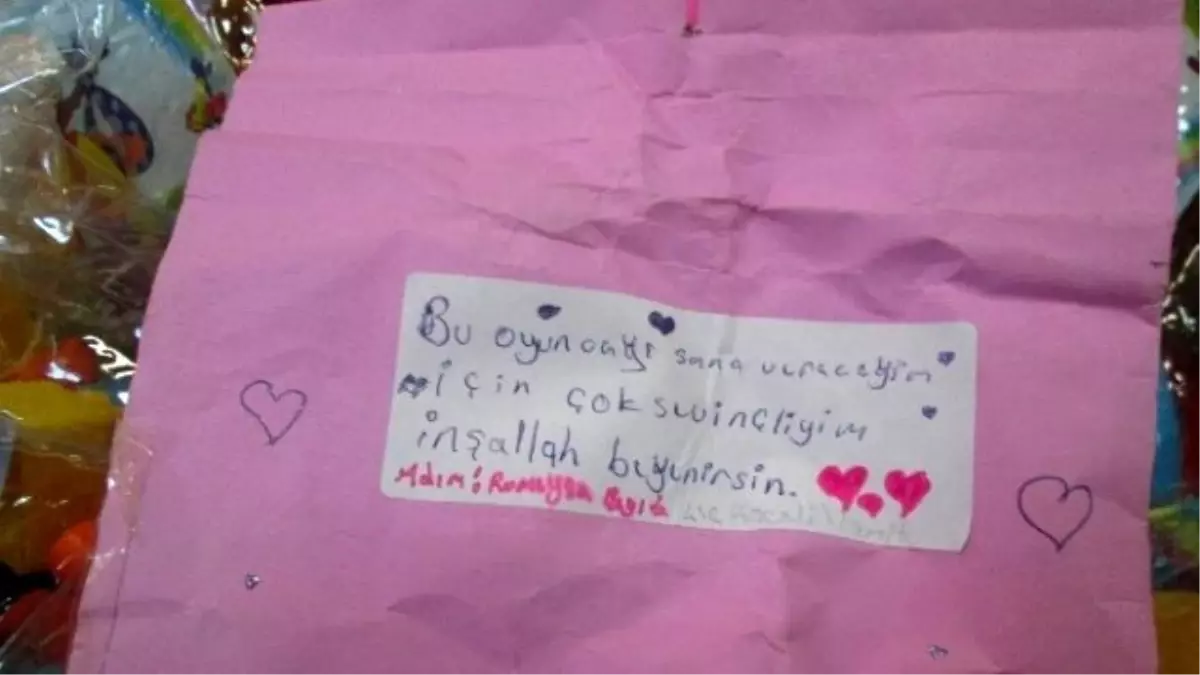 Bu oyuncağı sana vereceğim
için çok sevinçliyim
inşallah beyenirsin.
Adım: Rumeysa